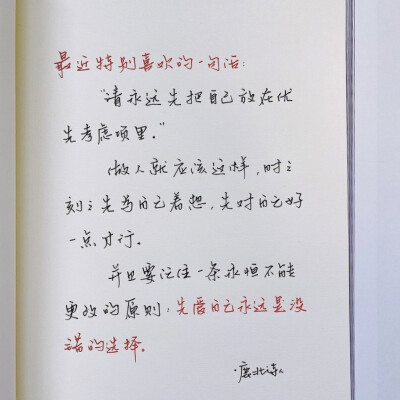 最近特别喜欢的一句话：
“请永远先把自己放在优
先考虑项里。”
做人就应该这样，时时
刻刻先为自己着想，先对自己好
一点才行。
并且要记住一条永恒不能
更改的原则：先爱自己永远是没
错的选择。